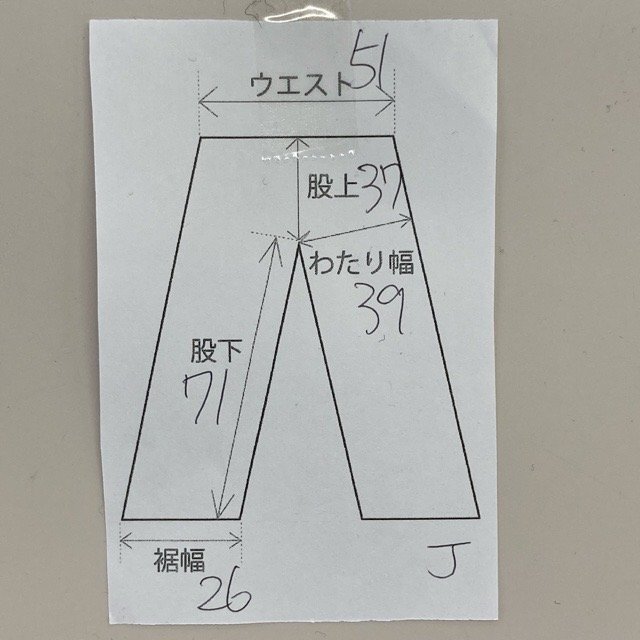 ウエスト 51
股上 37
わたり幅
39
股下
71
裾幅
26
J